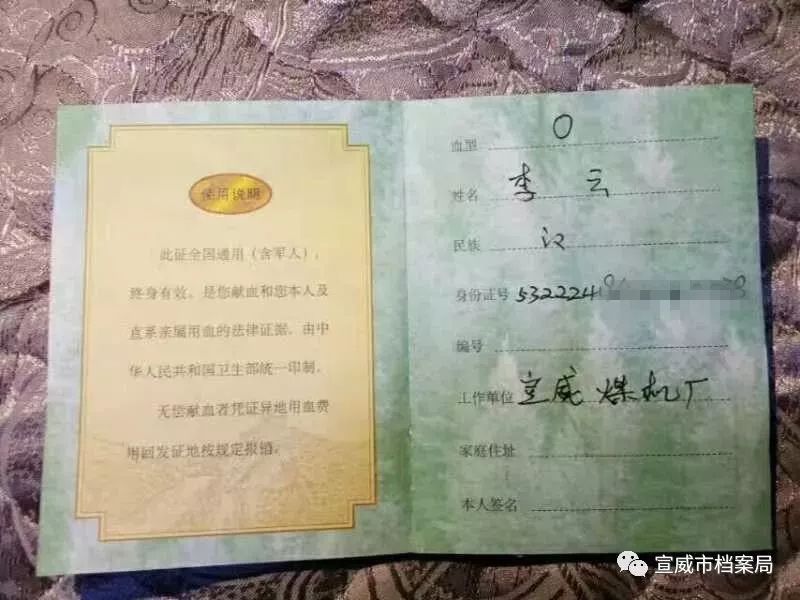 使用说明
此证全国通用（含军人），
终身有效。是您献血和您本人及
直系亲属用血的法律证据。由中
华人民共和国卫生部统一印制。
无偿献血者凭证异地用血费
用回发证地按规定报销。
血型 O
姓名 李云
民族 汉
身份证号 532224
编号
工作单位 宣威煤机厂
家庭住址
本人签名
宣威市档案局